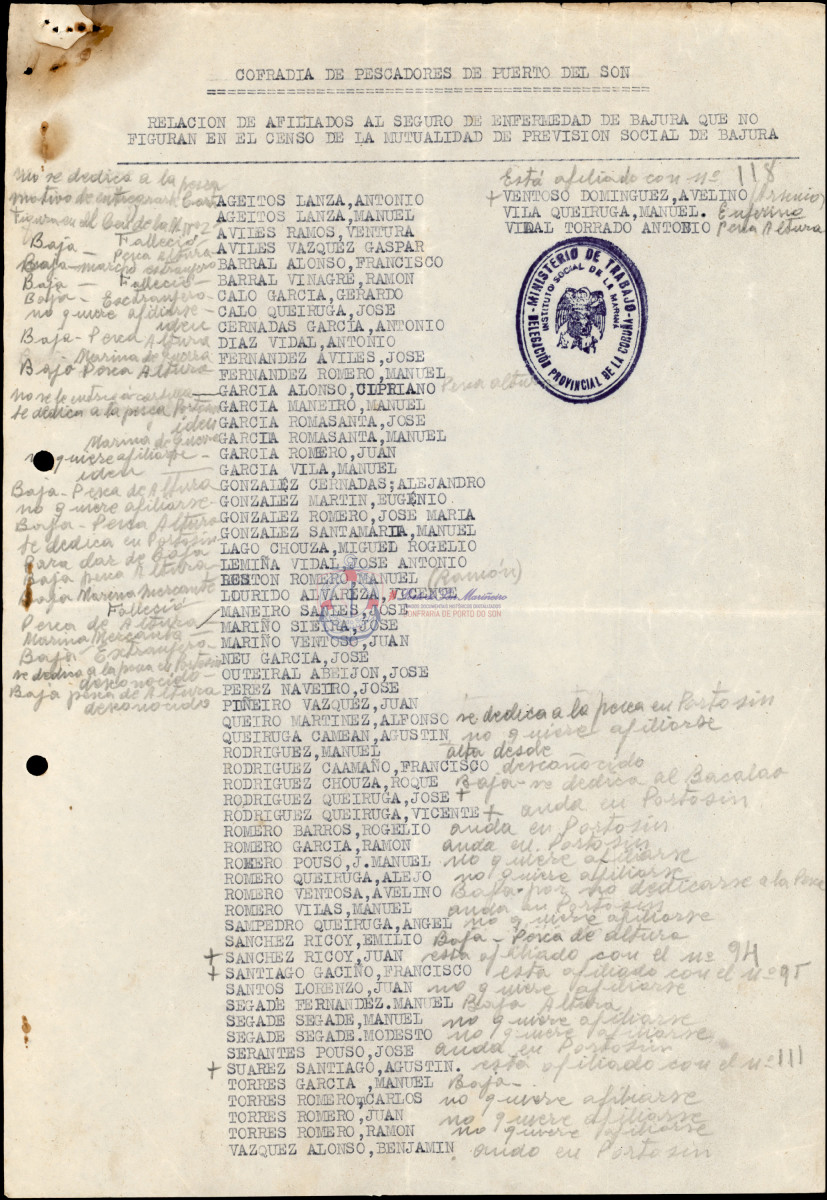 COFRADIA DE PESCADORES DE PUERTO DEL SON
RELACION DE AFILIADOS AL SEGURO DE ENFERMEDAD DE BAJURA QUE NO
FIGURAN EN EL CENSO DE LA MUTUALIDAD DE PREVISION SOCIAL DE BAJURA
no se dedica a la pesca
AGEITOS LANZA,ANTONIO
AGEITOS LANZA,MANUEL
Falleció AVILES RAMOS,VENTURA
Baja - Pesca altura AVILES VAZQUEZ GASPAR
Baja - marchó extranjero BARRAL ALONSO,FRANCISCO
Baja - Falleció - BARRAL VINAGRE,RAMON
Baja - Extranjero - CALO GARCIA,GERARDO
no quiere afiliarse - CALO QUEIRUGA,JOSE
idem CERNADAS GARCIA,ANTONIO
Baja - Pesca Altura DIAZ VIDAL,ANTONIO
Marina de guerra FERNANDEZ AVILES,JOSE
Baja Pesca Altura FERNANDEZ ROMERO,MANUEL
GARCIA ALONSO,CIPRIANO Pesca altura
se dedica a la pesca Portosin GARCIA MANEIRO,MANUEL
idem GARCIA ROMASANTA,JOSE
Marina de guerra GARCIA ROMASANTA,MANUEL
no quiere afiliarse - GARCIA ROMERO,JUAN
idem GARCIA VILA,MANUEL
Baja - Pesca de Altura GONZALEZ CERNADAS;ALEJANDRO
no quiere afiliarse - GONZALEZ MARTIN,EUGENIO
Baja - Pesca Altura GONZALEZ ROMERO,JOSE MARIA
se dedica en Portosin GONZALEZ SANTAMARIA,MANUEL
Para dar de baja LAGO CHOUZA,MIGUEL ROGELIO
Baja pesca Altura - LEMIÑA VIDAL,JOSE ANTONIO
Baja Marina Mercante LESTON ROMERO,MANUEL (Ramón)
LOURIDO ALVAREZA,VICENTE
Falleció MANEIRO SANLES,JOSE
Pesca de Altura - MARIÑO SIEIRA,JOSE
Marina Mercante - MARIÑO VENTOSO,JUAN
Baja - Extranjero - NEU GARCIA,JOSE
se dedica a la pesca en Portosin OUTEIRAL ABEIJON,JOSE
desconocido - PEREZ NAVEIRO,JOSE
Baja pesca de Altura PIÑEIRO VAZQUEZ,JUAN
desconocido
QUEIRO MARTINEZ,ALFONSO se dedica a la pesca en Portosin
QUEIRUGA CAMEAN,AGUSTIN no quiere afiliarse
RODRIGUEZ,MANUEL alta desde
RODRIGUEZ CAAMAÑO,FRANCISCO desconocido
RODRIGUEZ CHOUZA,ROQUE Baja - se dedica al Bacalao
RODRIGUEZ QUEIRUGA,JOSE +
RODRIGUEZ QUEIRUGA,VICENTE + anda en Portosin
ROMERO BARROS,ROGELIO anda en Portosin
ROMERO GARCIA,RAMON anda en Portosin
ROMERO POUSO,J.MANUEL no quiere afiliarse
ROMERO QUEIRUGA,ALEJO no quiere afiliarse
ROMERO VENTOSA,AVELINO Baja por no dedicarse a la Pesca
ROMERO VILAS,MANUEL anda en Portosin
SAMPEDRO QUEIRUGA,ANGEL no quiere afiliarse
SANCHEZ RICOY,EMILIO Baja - Pesca de altura
+ SANCHEZ RICOY,JUAN está afiliado con el nº 94
+ SANTIAGO GACIÑO,FRANCISCO está afiliado con el nº 95
SANTOS LORENZO,JUAN no quiere afiliarse
SEGADE FERNANDEZ.MANUEL Baja Altura
SEGADE SEGADE,MANUEL no quiere afiliarse
SEGADE SEGADE.MODESTO no quiere afiliarse
SERANTES POUSO,JOSE anda en Portosin
+ SUAREZ SANTIAGO,AGUSTIN. está afiliado con el nº 111
TORRES GARCIA ,MANUEL Baja -
TORRES ROMERO,CARLOS no quiere afiliarse
TORRES ROMERO,JUAN no quiere afiliarse
TORRES ROMERO,RAMON no quiere afiliarse
VAZQUEZ ALONSO,BENJAMIN anda en Portosin
Está afiliado con nº 118
+ VENTOSO DOMINGUEZ,AVELINO
VILA QUEIRUGA,MANUEL. Enfermo
VIDAL TORRADO ANTONIO Pesca Altura
MINISTERIO DE TRABAJO
INSTITUTO SOCIAL DE LA MARINA
DELEGACIÓN PROVINCIAL DE LA CORUÑA
CONFRARIA DE PORTO DO SON